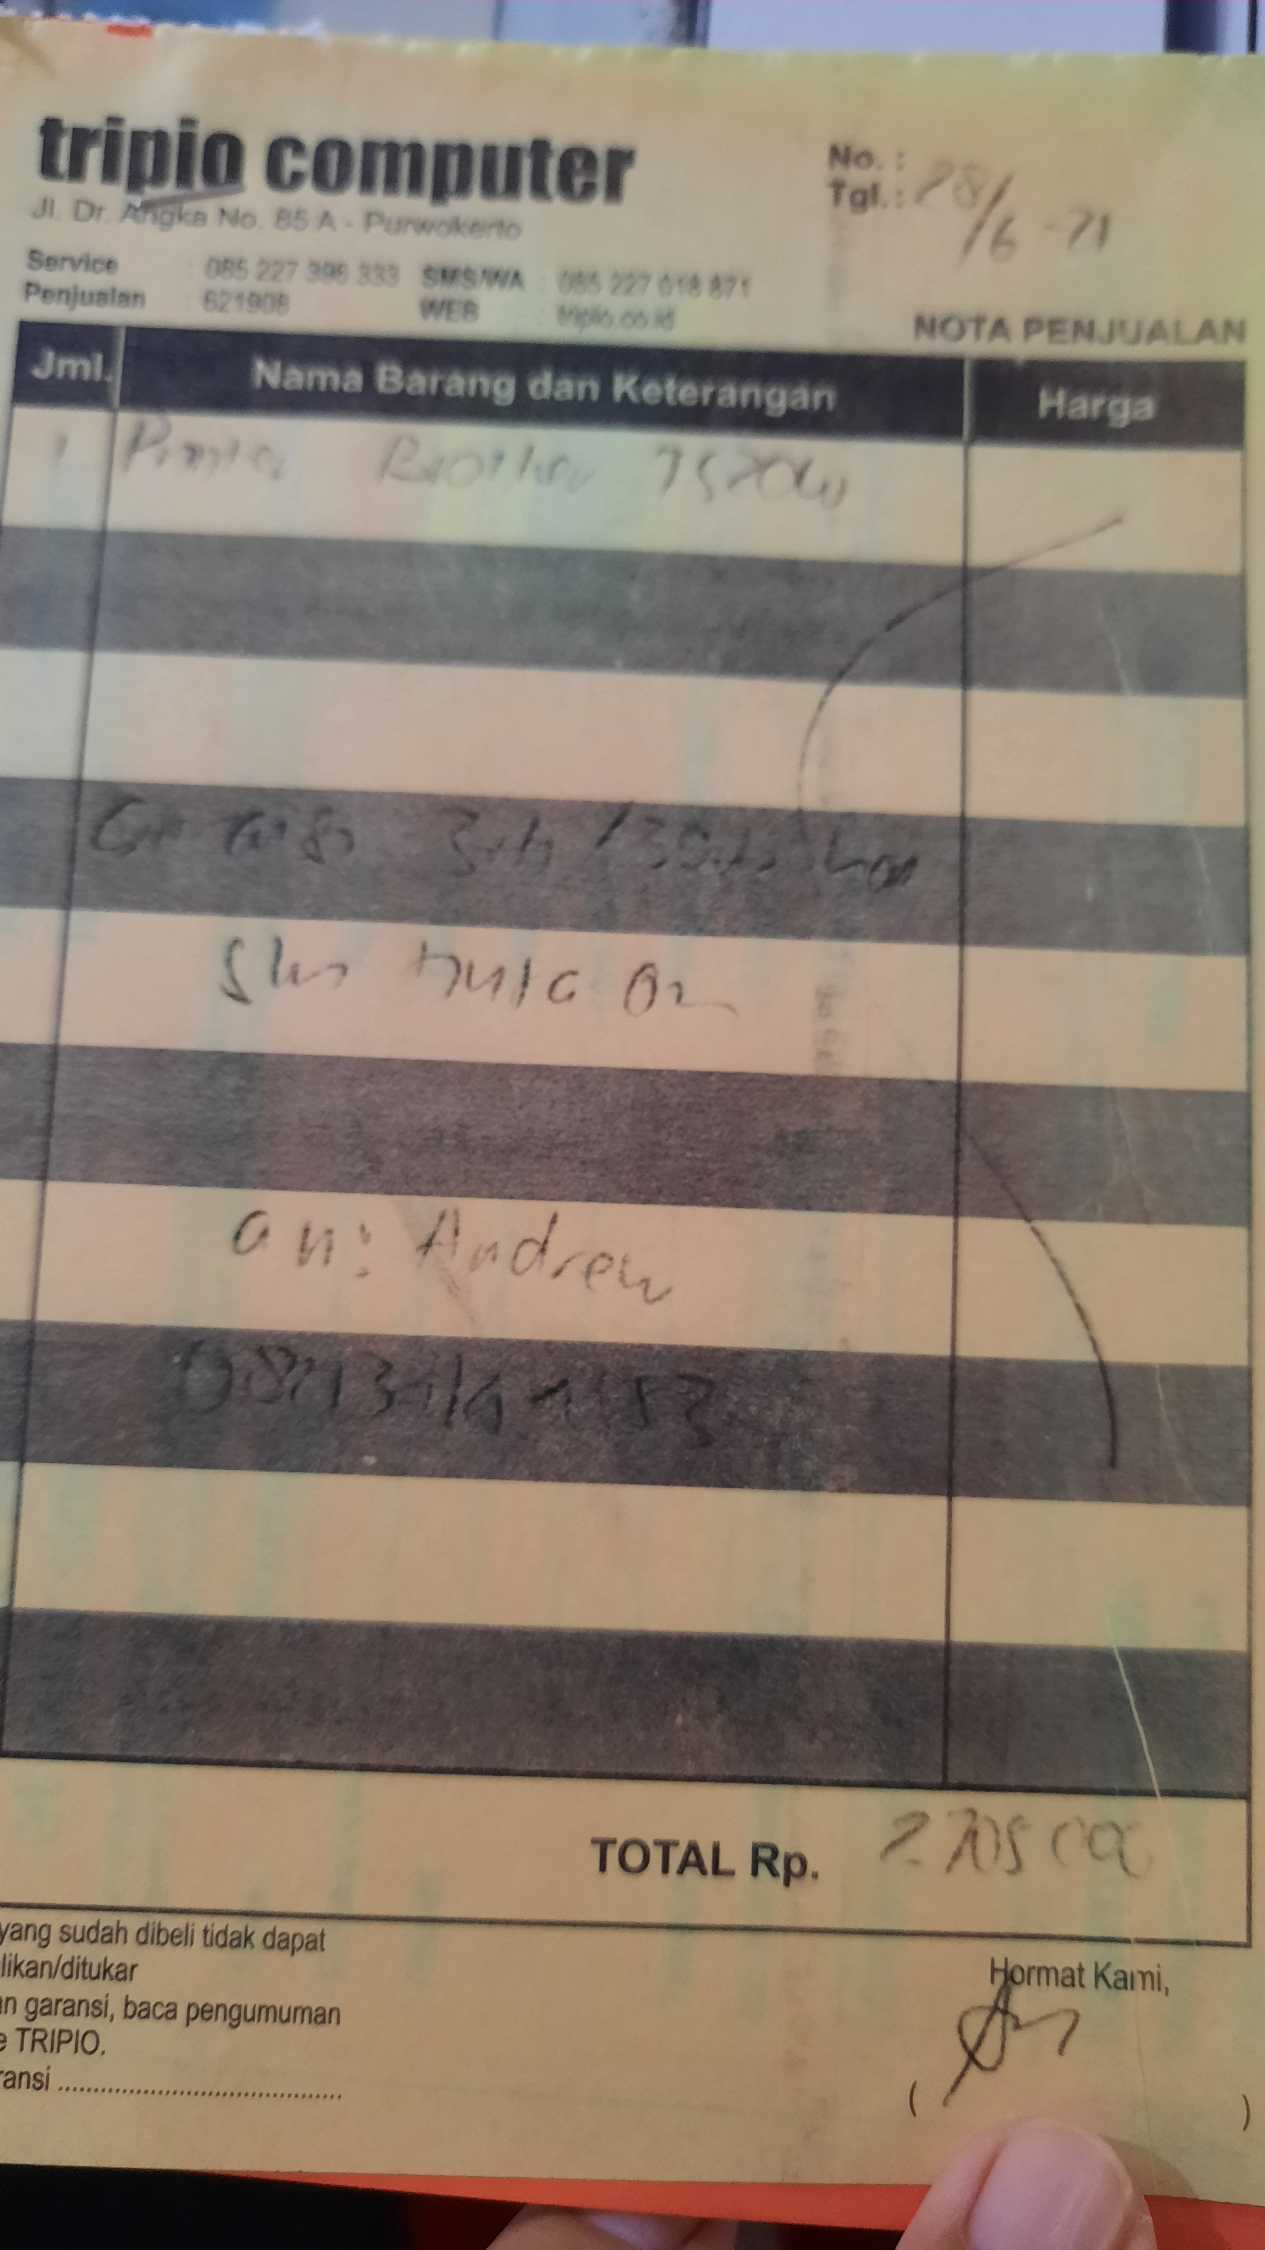 tripio computer
No. :
Jl. Dr. Angka No. 85 A - Purwokerto
Tgl. : 28/6 - 21
Service : 085 227 396 333 SMS/WA : 085 227 018 871
Penjualan : 621908 WEB : tripio.co.id
NOTA PENJUALAN
Jml. Nama Barang dan Keterangan Harga
1 Printer Brother
an: Andrew
TOTAL Rp. 2.705.000
yang sudah dibeli tidak dapat
likan/ditukar
an garansi, baca pengumuman
e TRIPIO.
ransi ........................................
Hormat Kami,
( )